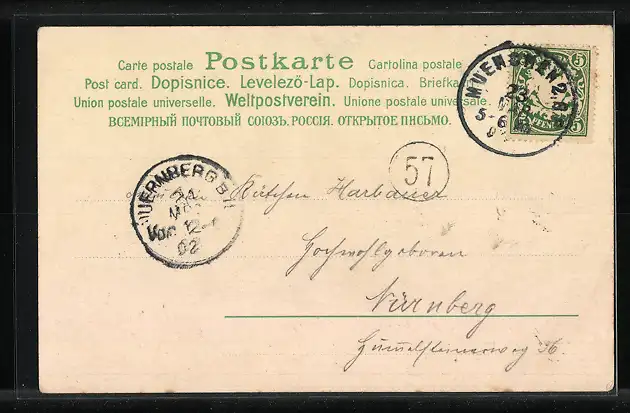 Carte postale Postkarte Cartolina postale
Post card. Dopisnice. Levelező-Lap. Dopisnica. Briefka
Union postale universelle. Weltpostverein. Unione postale universale.
ВСЕМІРНЫЙ ПОЧТОВЫЙ СОЮЗЪ. РОССІЯ. ОТКРЫТОЕ ПИСЬМО.
MUENCHEN 2.
23
5-6
5
5
57
NUERNBERG
24
MAI
Vor. 12-
02
Harbauer
Hochwohlgeboren
Nürnberg
Hummelsteinerweg 36.